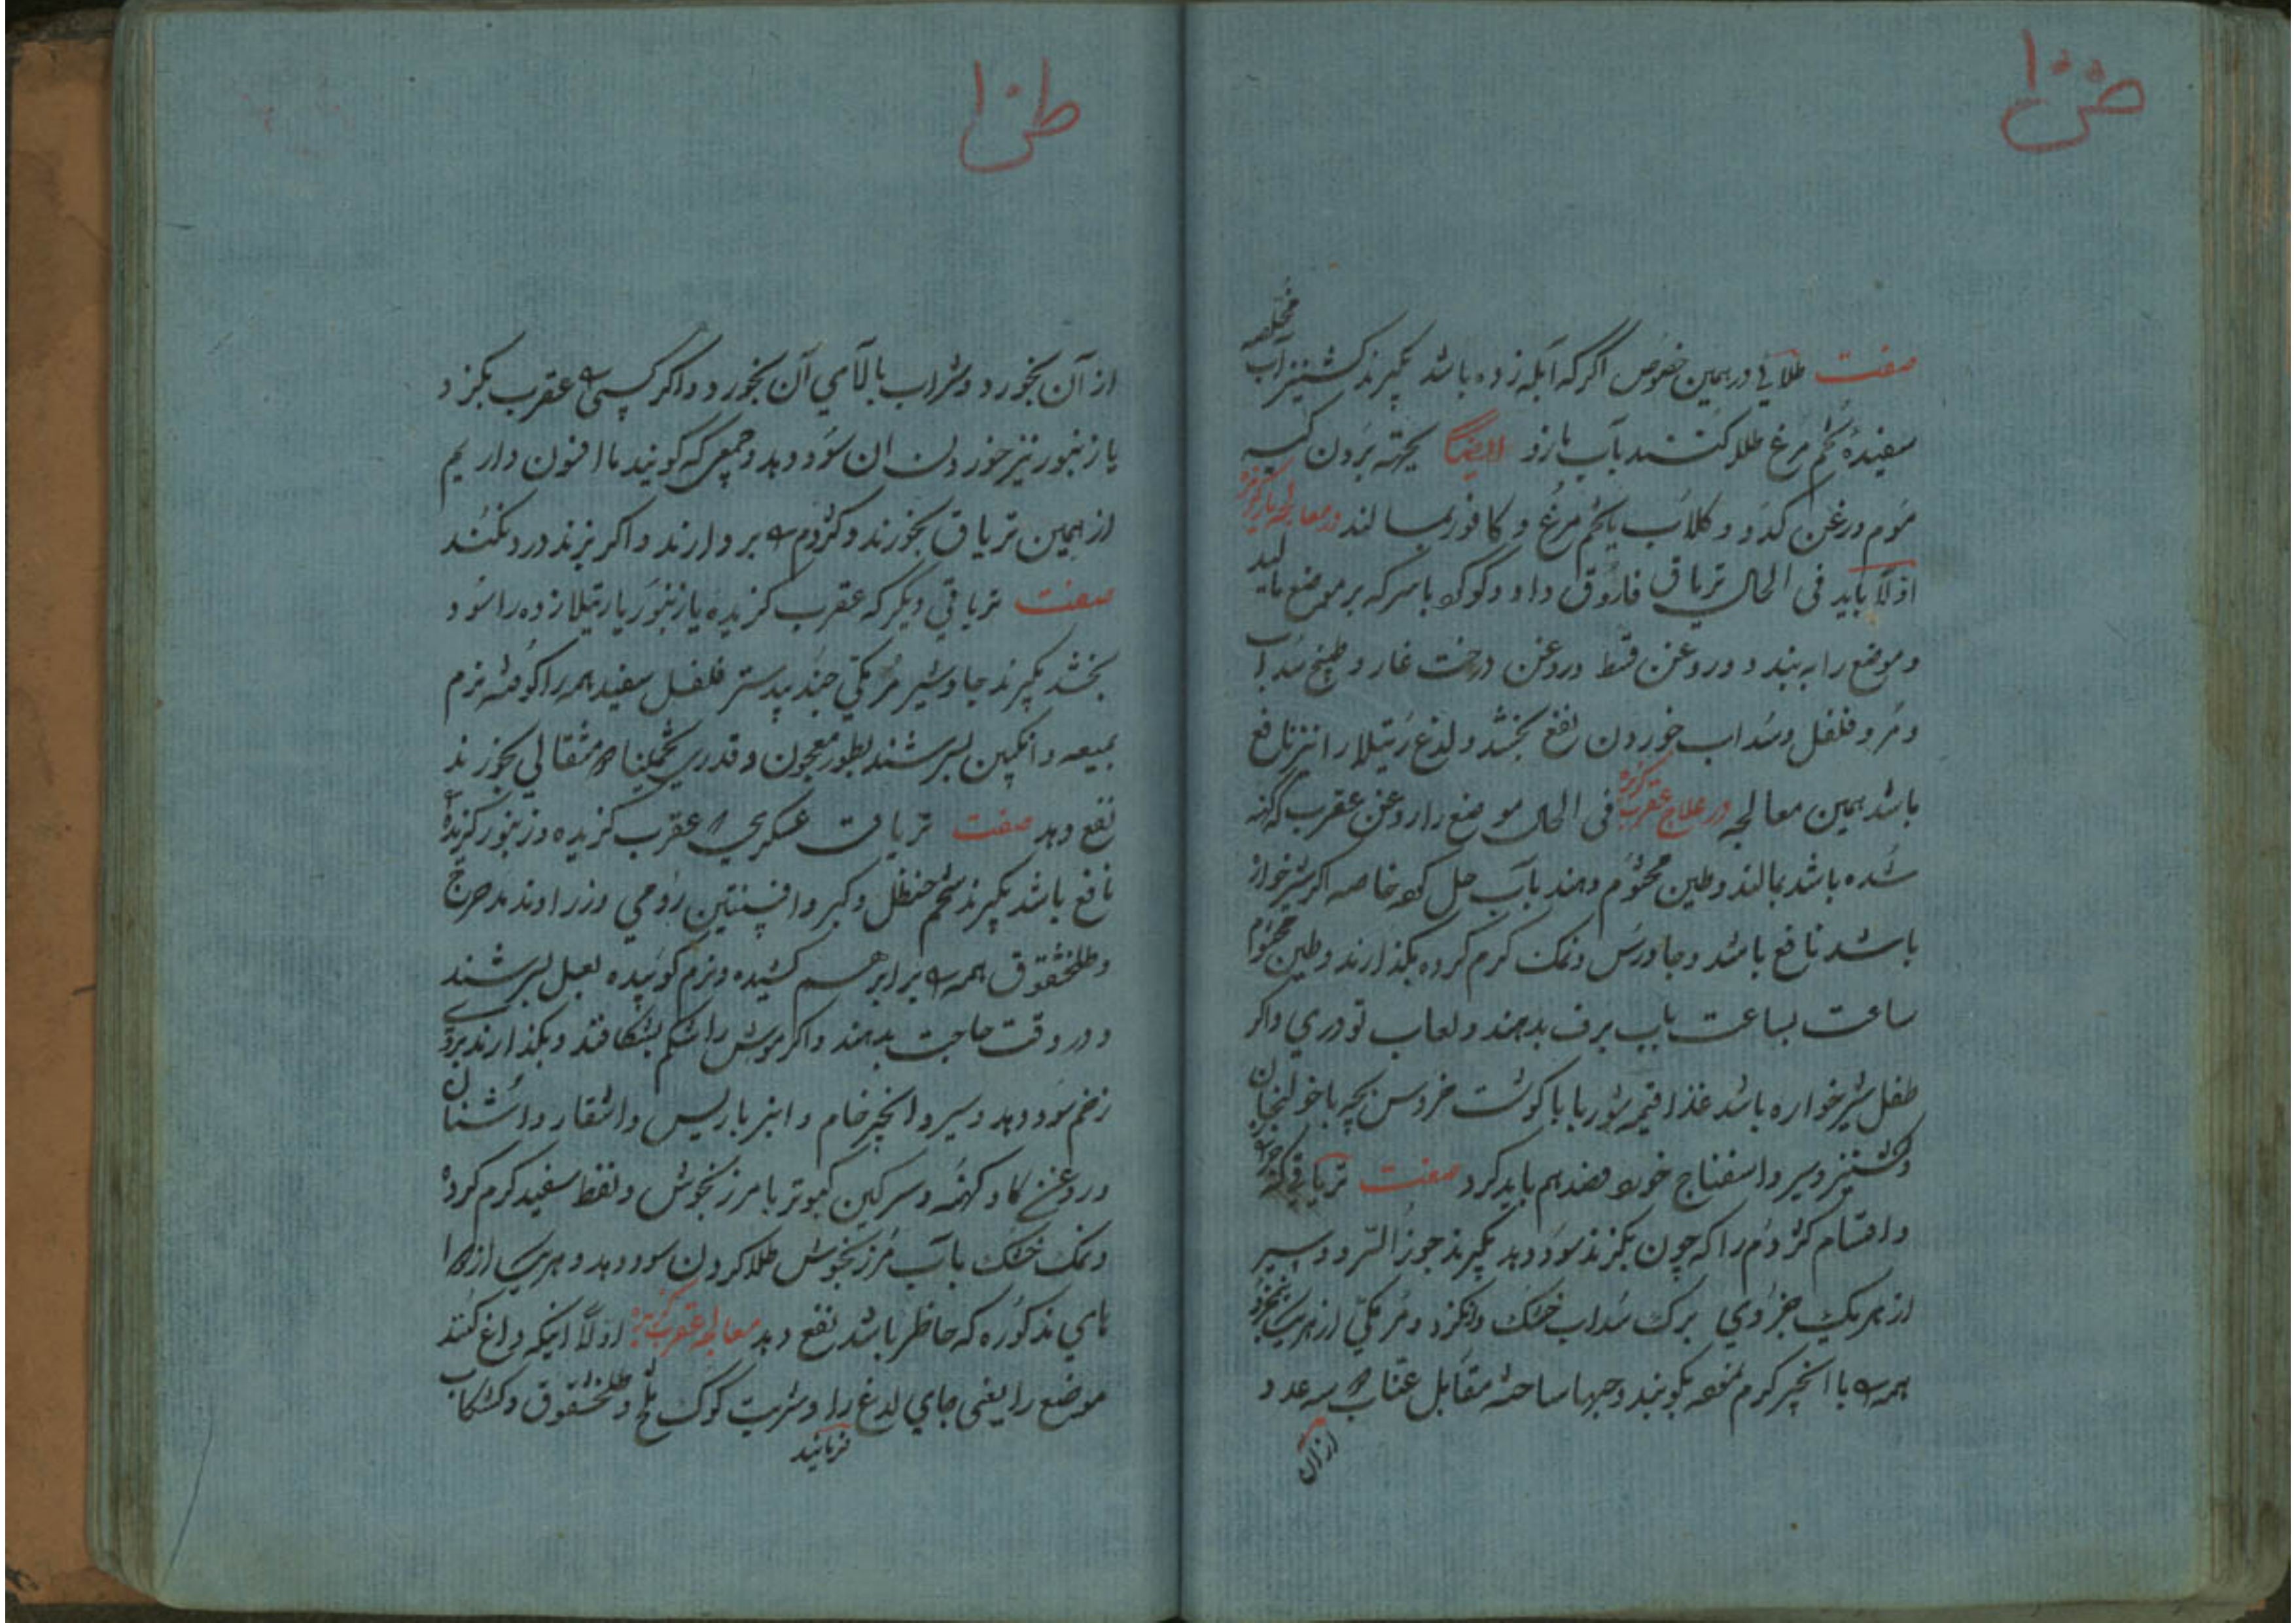 صفت طلائی در همین خصوص اگر که آبله زده باشد بگیرند کشنیز آب
سفیدهٔ تخم مرغ طلا کنند بآب مازو ایضاً بجهة بردن
موم و روغن کدو و گلاب با تخم مرغ و کافور بمالند در معالجه مار گزیده
اولاً باید فی الحال تریاق فاروق داد و گوگرد با سرکه بر موضع مالید
و موضع را به بندد و روغن قسط و روغن درخت غار و طبیخ سداب
و مر و فلفل و سداب خوردن نفع بخشد و لدغ رتیلا را نیز نافع
باشد همین معالجه در علاج عقرب گزیده فی الحال موضع را روغن عقرب که کهنه
شده باشد بمالند و طین مختوم دهند بآب حل کرده خاصه اگر شیرخوار
باشد نافع باشد و جاورس و نمک گرم کرده بگذارند و طین مختوم
ساعت بساعت بآب برف بدهند و لعاب تودری و اگر
طفل شیرخواره باشد غذا قیمه شوربا با گوشت خروس بچه با خولنجان
و کشنیز و سیر و اسفناج خورد فصد هم باید کرد صفت تریاقی که
و اقسام کژدم را که چون بگزند سود دهد بگیرند جوز السرو و سیر
از هر یک جزوی برگ سداب خشک و انگزد و مر مکی از هر یک
همه را با انجیر گرم بکوبند و حبها ساخته مقابل عناب سه عدد
از آن
از آن بخورد و شراب بالای آن بخورد و اگر کسی را عقرب بگزد
یا زنبور نیز خوردن ان سود دهد و جمعی که گویند ما افسون داریم
از همین تریاق بخورند و کژدم را بردارند و اگر بزند درد نکند
صفت تریاقی دیگر که عقرب گزیده یا زنبور یا رتیلا زده را سود
بخشد بگیرند جاوشیر مر مکی جند بیدستر فلفل سفید همه را کوفته نرم
بمیعه و انگبین بسرشند بطور معجون و قدری تخمیناً مثقالی بخورند
نفع دهد صفت تریاق عسکری که عقرب گزیده و زنبور گزیده را
نافع باشد بگیرند شحم حنظل و کبر و افسنتین رومی و زراوند مدحرج
و طلخشقوق همه را برابر هم کشیده و نرم کوبیده بعسل بسرشند
و در وقت حاجت بدهند و اگر موش را شکم بشکافند و بگذارند بر روی
زخم سود دهد و سیر و انجیر خام و انبرباریس و اشقار و اشنان
و روغن گاو کهنه و سرگین کبوتر با مرزنجوش و نفط سفید گرم کرده
و نمک خشک بآب مرزنجوش طلا کردن سود دهد و هر یک از دوا
های مذکوره که حاظر باشد نفع دهد معالجه عقرب گزیده اولاً اینکه داغ کنند
موضع را یعنی جای لدغ را و شربت کوک تلخ و طلخشقوق و کشکاب
فرمایند